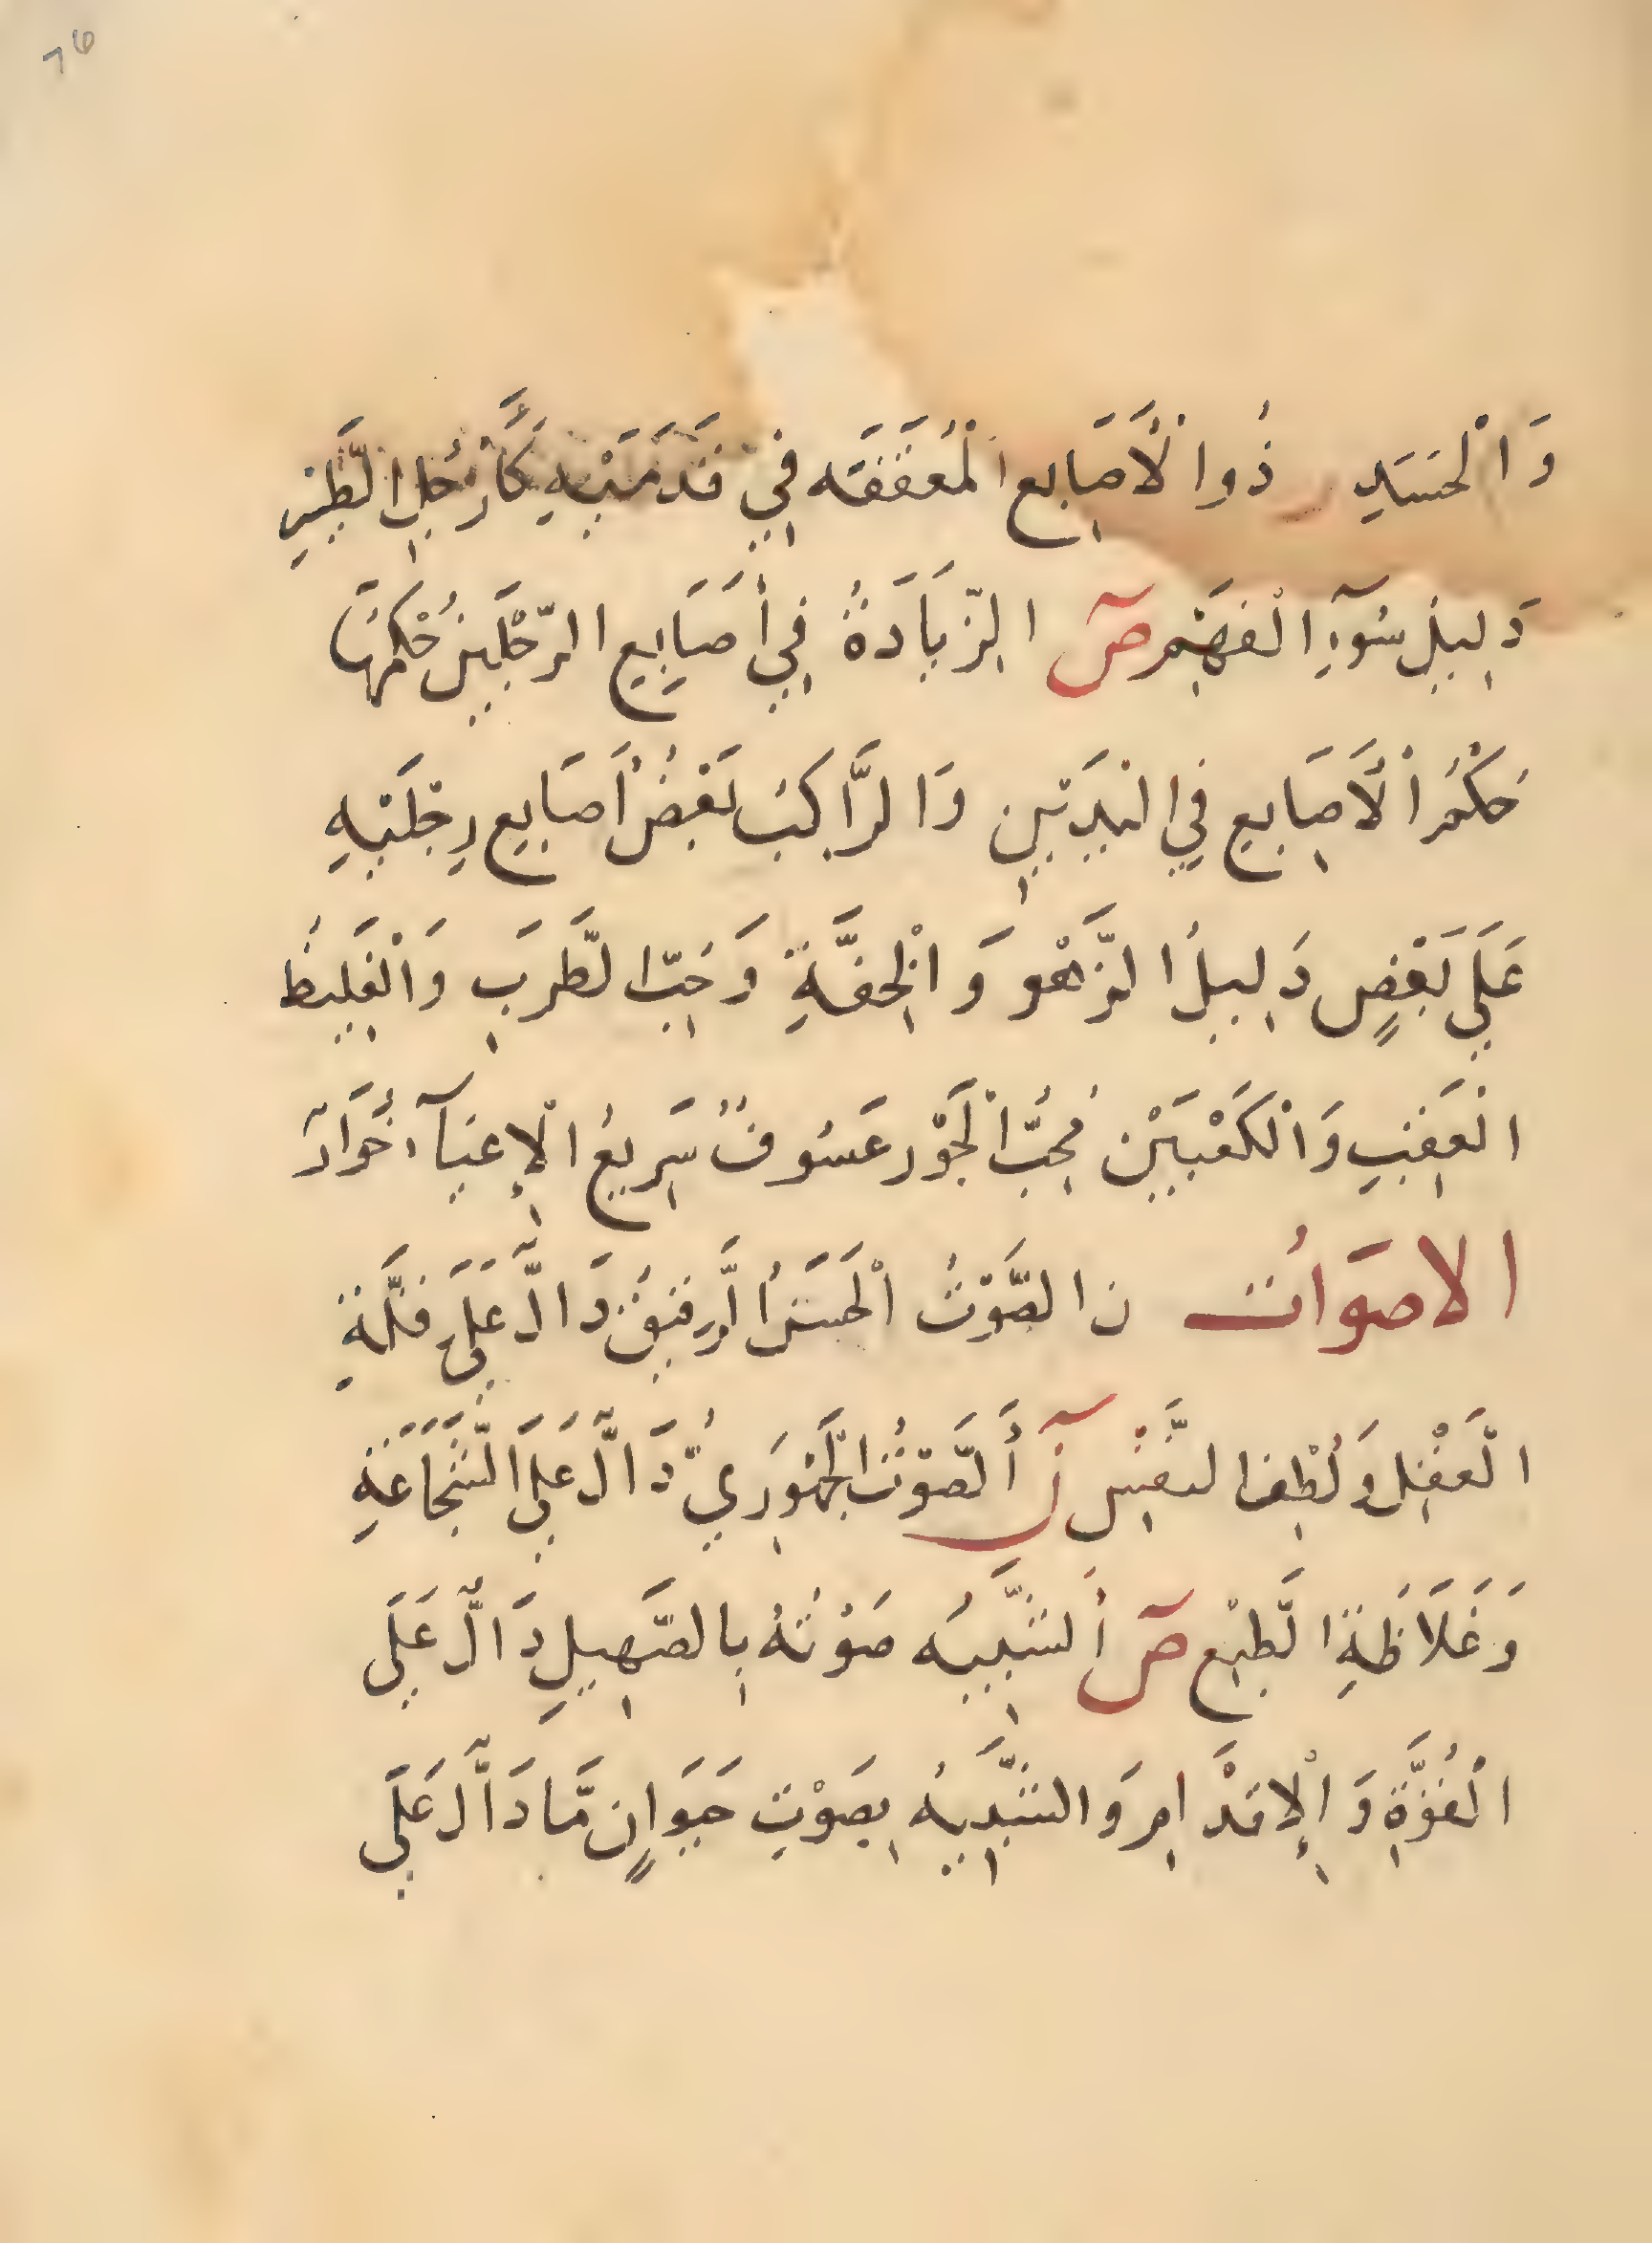 ٧٦
وَالْحَسَدِ ر ذُوا الْأَصَابِع الْمُعَقَّفَه فِي قَدَمَيْهِ كَأَرْجُلِ الطَّيْرِ
دَلِيل سُوٓءِ الْفَهْمِ صٓ الزِّيَادَةُ فِي أَصَابِعِ الرِّجْلَيْنِ حُكْمُهَا
حُكْمُ الْأَصَابِعِ فِي الْيَدَيْنِ وَالرَّاكِبُ بَعْضُ أَصَابِعِ رِجْلَيْهِ
عَلَى بَعْضٍ دَلِيلُ الزَّهْو وَالْخِفَّةِ وَحُبِّ الطَّرَبِ وَالْغَلِيظُ
الْعَقِبِ وَالْكَعْبَيْنِ مُحِبُّ الْجَوْر عَسُوفٌ سَرِيعُ الْإِعْيَآءِ خَوَّارٌ
الاصوَاتُ ن الصَّوْتُ الْحَسَنُ الرَّقِيقُ دَالٌّ عَلَى قِلَّةِ
الْعَقْلِ وَلُطْفِ النَّفْسِ نٓ أَلصَّوْتُ الْجَهْوَرِيُّ دَالٌّ عَلَى الشَّجَاعَةِ
وَغَلَاظَةِ الطَّبْعِ صٓ أَلشَّبِيهُ صَوْتُهُ بِالصَّهِيلِ دَالٌّ عَلَى
الْقُوَّةِ وَالْإِقْدَامِ وَالشَّبِيهُ بِصَوْتِ حَيَوَانٍ مَّا دَالٌّ عَلَى